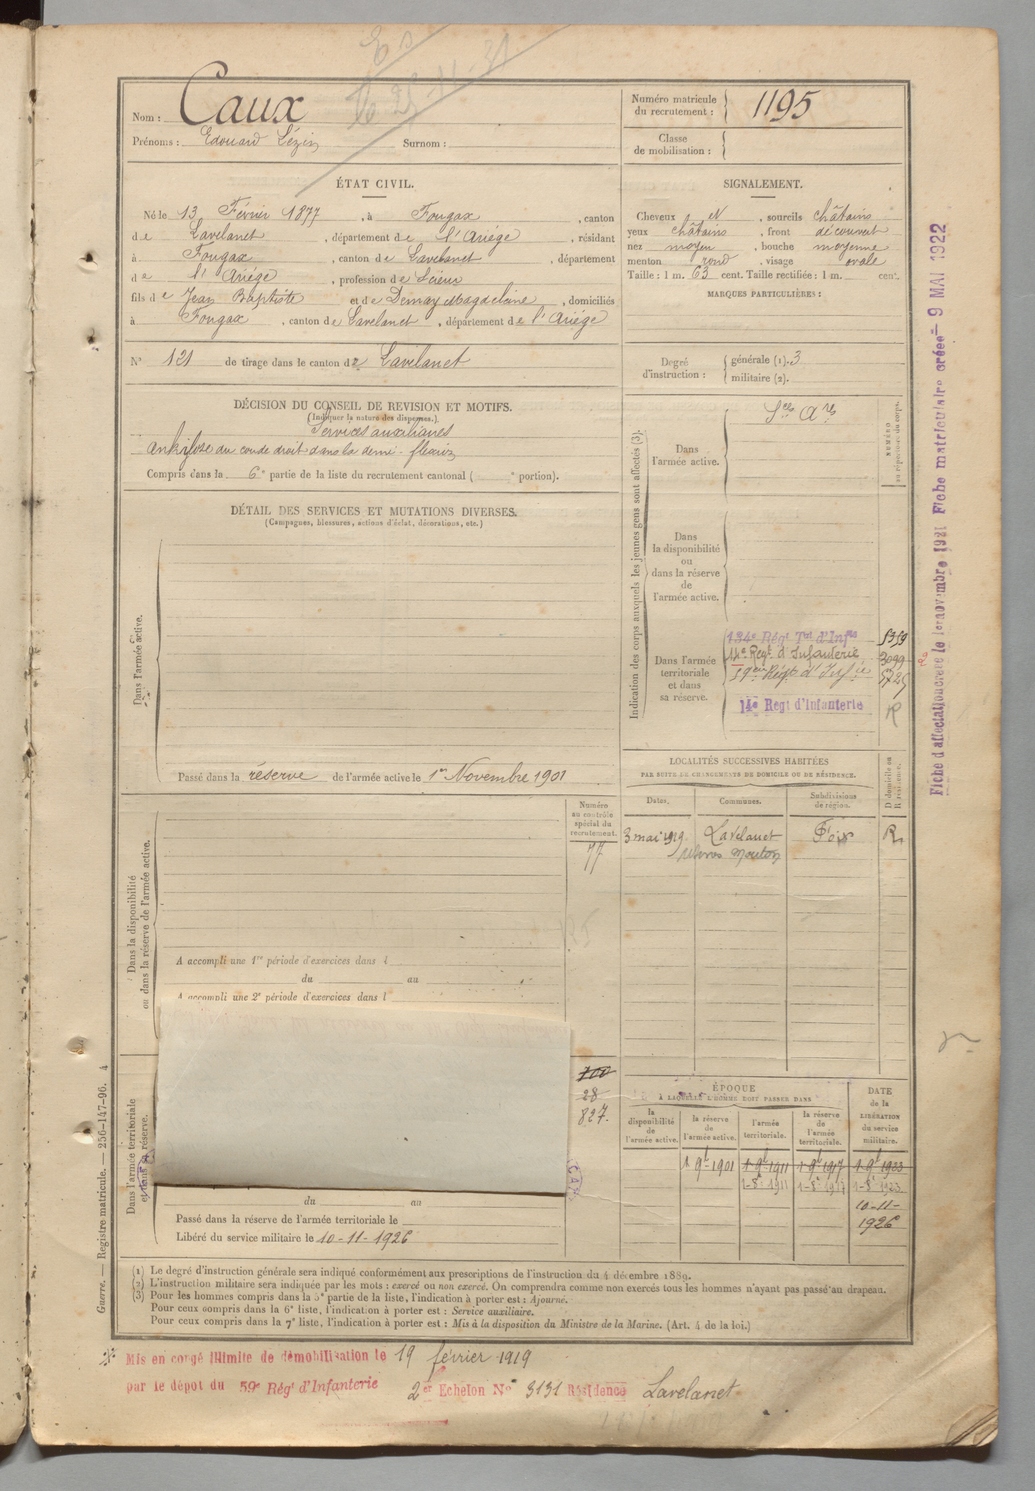 Nom : Caux
Prénoms : Edouard Lézin Surnom :
Numéro matricule
du recrutement : 1195
Classe
de mobilisation :
ÉTAT CIVIL.
Né le 13 Février 1877, à Fougax, canton
de Lavelanet, département de l'Ariége, résidant
à Fougax, canton de Lavelanet, département
de l'Ariége, profession de Scieur
fils de Jean Baptiste et de Demay Magdelaine, domiciliés
à Fougax, canton de Lavelanet, département de l'Ariége
N° 121 de tirage dans le canton de Lavelanet
SIGNALEMENT.
Cheveux et, sourcils châtains
yeux châtains, front découvert
nez moyen, bouche moyenne
menton rond, visage ovale
Taille : 1 m. 63 cent. Taille rectifiée : 1 m. cent.
MARQUES PARTICULIÈRES :
Degré
d'instruction :
générale (1). 3
militaire (2).
DÉCISION DU CONSEIL DE REVISION ET MOTIFS.
(Indiquer la nature des dispenses.)
Services auxiliaires
Ankilose du coude droit dans la demi-flexion
Compris dans la 6e partie de la liste du recrutement cantonal ( e portion).
DÉTAIL DES SERVICES ET MUTATIONS DIVERSES.
(Campagnes, blessures, actions d'éclat, décorations, etc.)
Dans l'armée active.
Passé dans la réserve de l'armée active le 1er Novembre 1901
Indication des corps auxquels les jeunes gens sont affectés (3).
NUMÉRO
au répertoire du corps.
Dans
l'armée active.
Ses Ares
Dans
la disponibilité
ou
dans la réserve
de
l'armée active.
Dans l'armée
territoriale
et dans
sa réserve.
134e Régt Tal d'Infie 5359
14e Regt d'Infanterie 3099
59eme Régt d'Infie
14e Regt d'Infanterie R
LOCALITÉS SUCCESSIVES HABITÉES
PAR SUITE DE CHANGEMENTS DE DOMICILE OU DE RÉSIDENCE.
Dates. Communes. Subdivisions
de région.
D domicile ou
R résidence.
3 mai 1919. Lavelanet Foix R
Dans la disponibilité
ou dans la réserve de l'armée active.
Numéro
au contrôle
spécial du
recrutement.
77
A accompli une 1re période d'exercices dans l
du au
A accompli une 2e période d'exercices dans l
Dans l'armée territoriale
et dans sa réserve.
28
827.
du au
Passé dans la réserve de l'armée territoriale le
Libéré du service militaire le 10-11-1926
ÉPOQUE
À LAQUELLE L'HOMME DOIT PASSER DANS
la
disponibilité
de
l'armée active.
la réserve
de
l'armée active.
l'armée
territoriale.
la réserve
de
l'armée
territoriale.
DATE
de la
LIBÉRATION
du service
militaire.
1-9bre 1901 1-9bre 1911 1-9bre 1917 1-9bre 1923
10-11-
1926
(1) Le degré d'instruction générale sera indiqué conformément aux prescriptions de l'instruction du 4 décembre 1889.
(2) L'instruction militaire sera indiquée par les mots : exercé ou non exercé. On comprendra comme non exercés tous les hommes n'ayant pas passé au drapeau.
(3) Pour les hommes compris dans la 5e partie de la liste, l'indication à porter est : Ajourné.
Pour ceux compris dans la 6e liste, l'indication à porter est : Service auxiliaire.
Pour ceux compris dans la 7e liste, l'indication à porter est : Mis à la disposition du Ministre de la Marine. (Art. 4 de la loi.)
Mis en congé illimité de démobilisation le 19 février 1919
par le dépôt du 59e Régt d'Infanterie 2er Echelon N° 3131 Résidence Lavelanet
Guerre. — Registre matricule. — 256-147-96. 4
Fiche d'affectation créée le 1er novembre 1921 Fiche matriculaire créée 9 MAI 1922